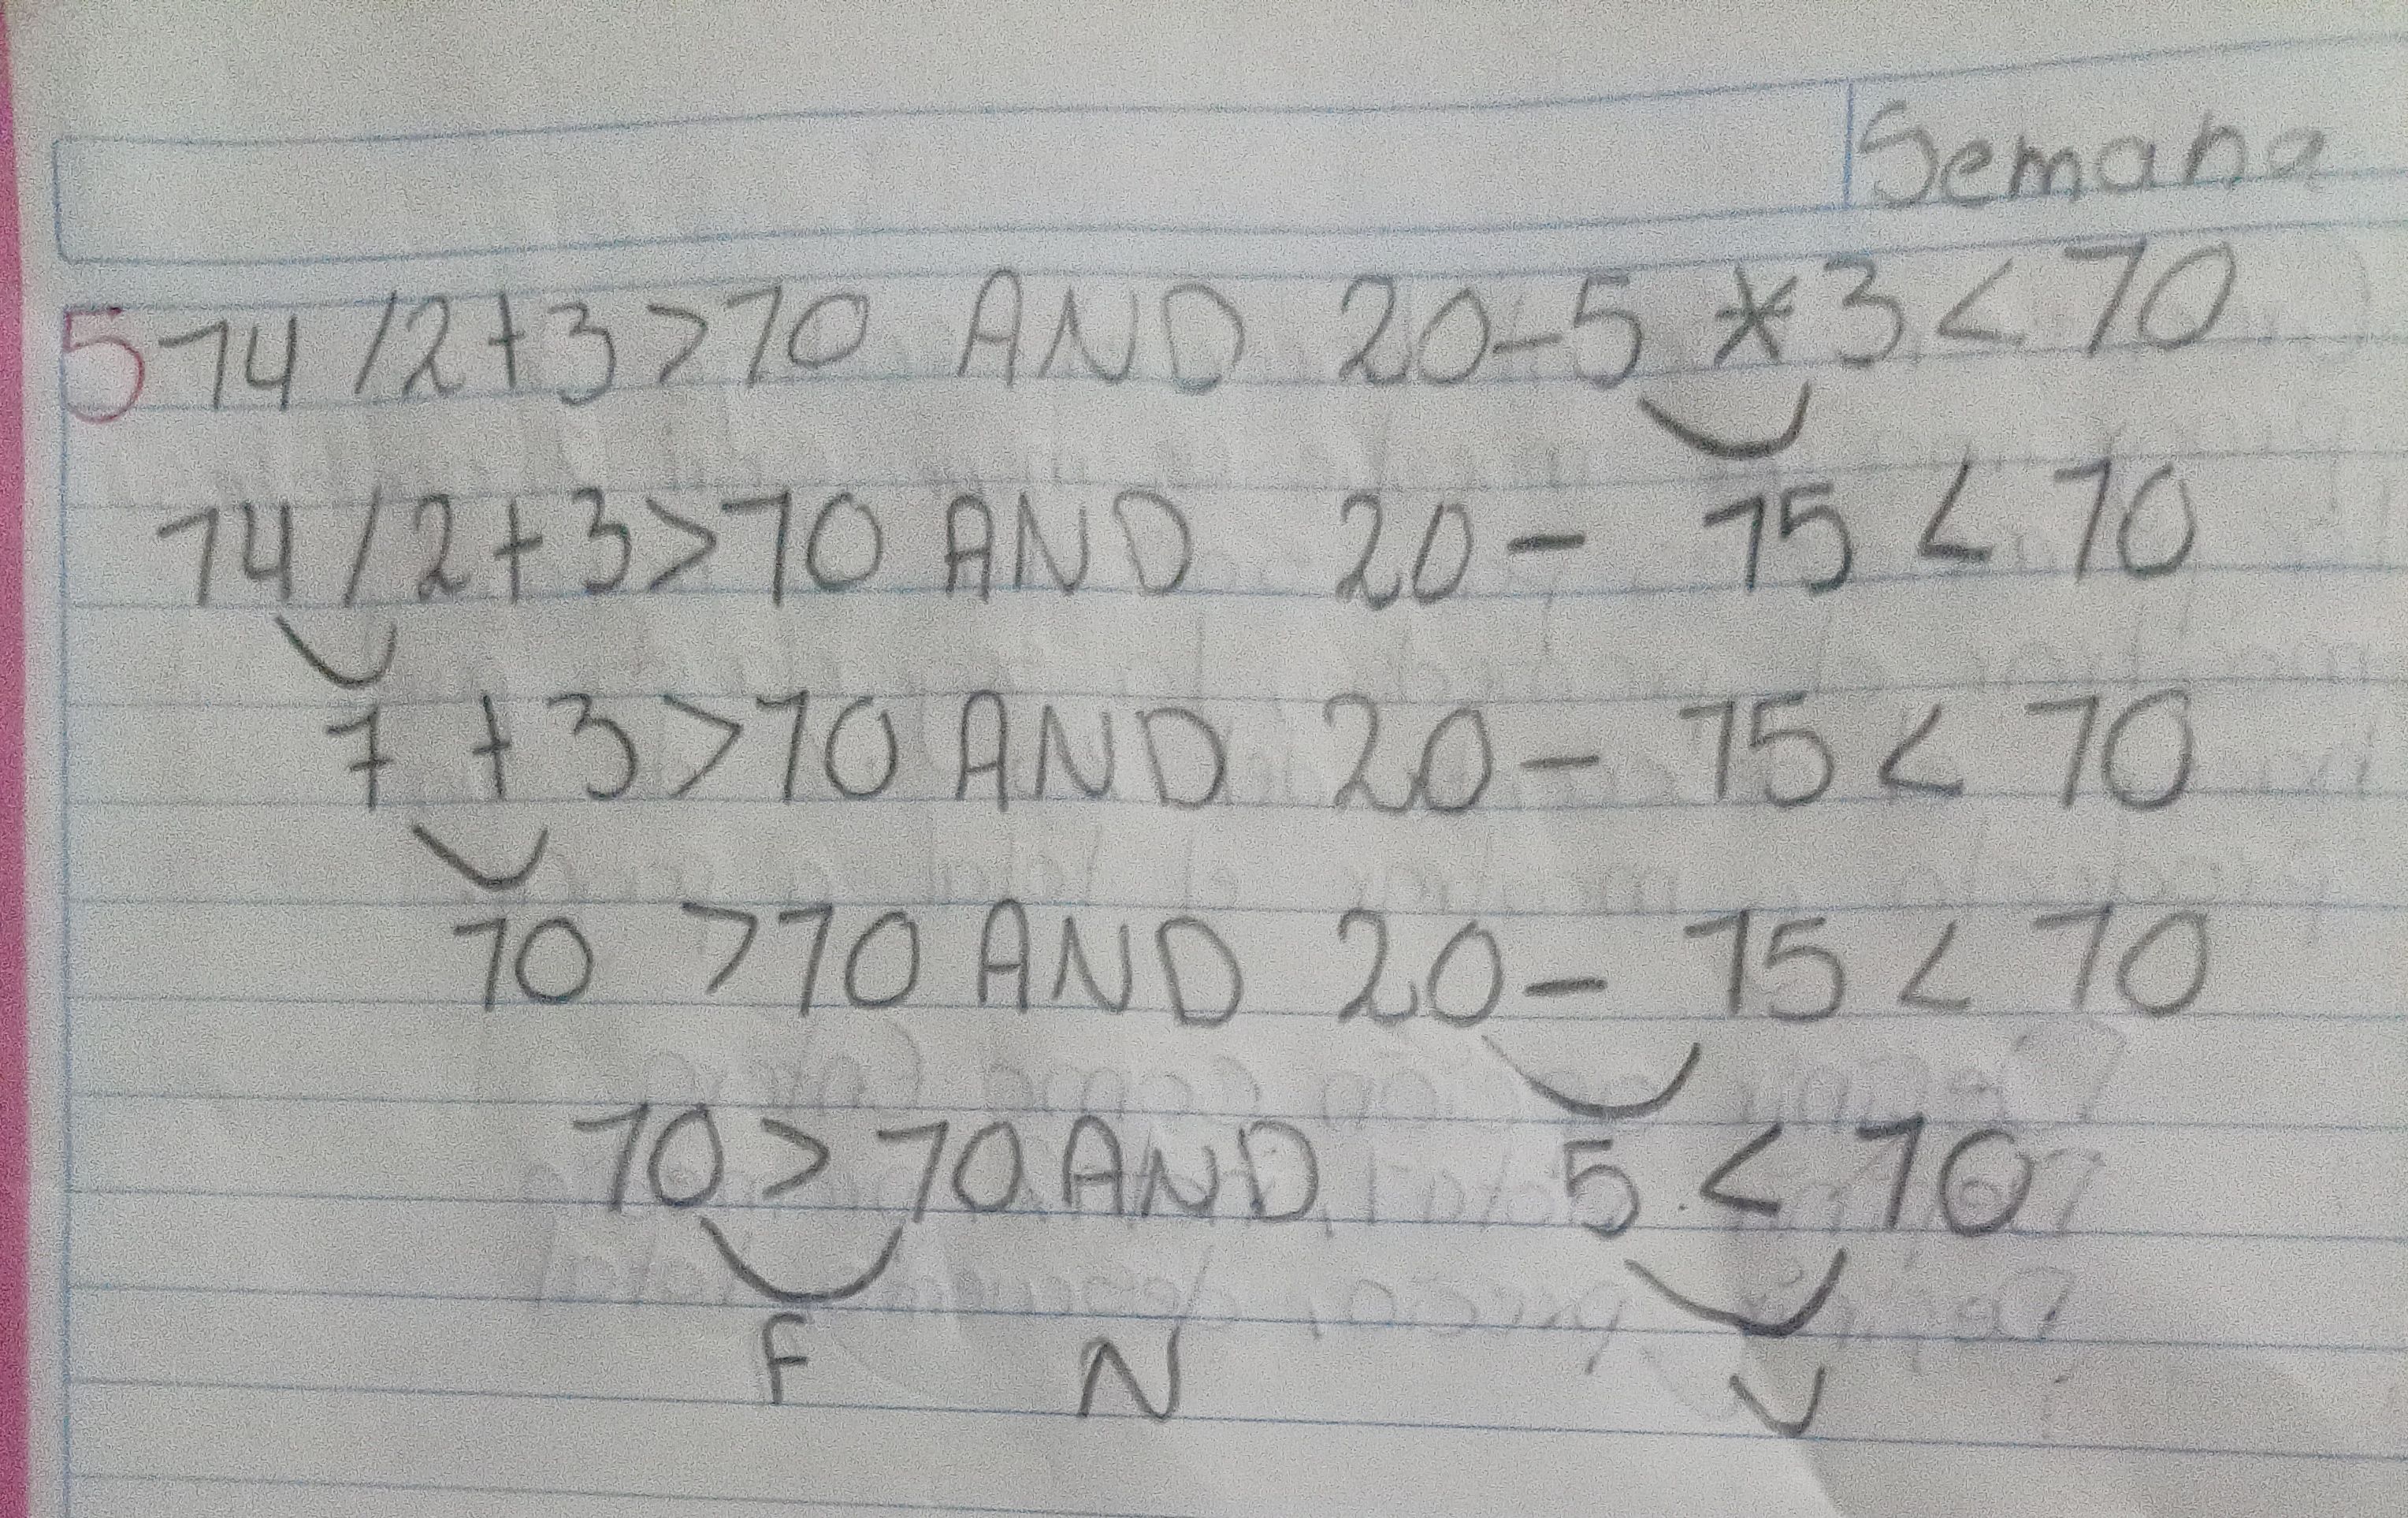 Semana
5 14 / 2 + 3 > 10 AND 20 - 5 * 3 < 10
14 / 2 + 3 > 10 AND 20 - 15 < 10
7 + 3 > 10 AND 20 - 15 < 10
10 > 10 AND 20 - 15 < 10
10 > 10 AND 5 < 10
F N V